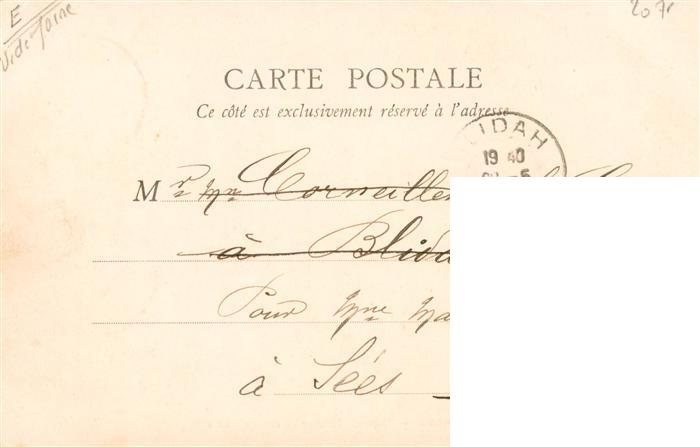 E
Vide-Jorne
20 fr
CARTE POSTALE
Ce côté est exclusivement réservé à l'adresse
IDAH
19 40
M r Mme Corneille
à Blida
Pour Mme Ma
à Sées